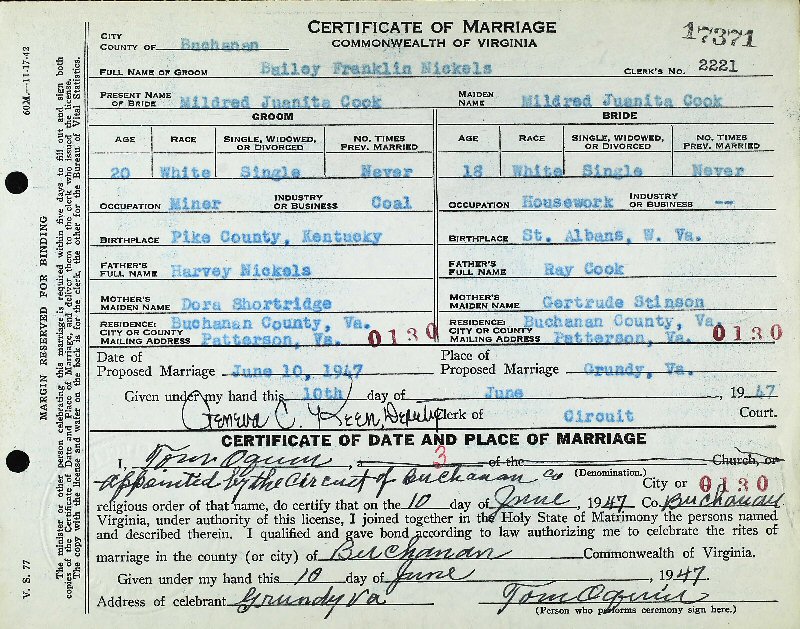 CERTIFICATE OF MARRIAGE
COMMONWEALTH OF VIRGINIA
17371
CITY
COUNTY OF Buchanan
FULL NAME OF GROOM Bailey Franklin Nickels CLERK'S NO. 2221
PRESENT NAME OF BRIDE Mildred Juanita Cook MAIDEN NAME Mildred Juanita Cook
GROOM BRIDE
AGE RACE SINGLE, WIDOWED, OR DIVORCED NO. TIMES PREV. MARRIED AGE RACE SINGLE, WIDOWED, OR DIVORCED NO. TIMES PREV. MARRIED
20 White Single Never 18 White Single Never
OCCUPATION Miner INDUSTRY OR BUSINESS Coal OCCUPATION Housework INDUSTRY OR BUSINESS --
BIRTHPLACE Pike County, Kentucky BIRTHPLACE St. Albans, W. Va.
FATHER'S FULL NAME Harvey Nickels FATHER'S FULL NAME Ray Cook
MOTHER'S MAIDEN NAME Dora Shortridge MOTHER'S MAIDEN NAME Gertrude Stinson
RESIDENCE: CITY OR COUNTY Buchanan County, Va. RESIDENCE: CITY OR COUNTY Buchanan County, Va.
MAILING ADDRESS Patterson, Va. 0130 MAILING ADDRESS Patterson, Va. 0130
Date of Proposed Marriage June 10, 1947 Place of Proposed Marriage Grundy, Va.
Given under my hand this 10th day of June, 1947
Geneva C. Keen, Deputy Clerk of Circuit Court.
CERTIFICATE OF DATE AND PLACE OF MARRIAGE
I, Tom Oquin, a 3 of the Church, or
(Denomination.)
appointed by the Circuit of Buchanan Co City or 0130
religious order of that name, do certify that on the 10 day of June, 1947 Co. Buchanan
Virginia, under authority of this license, I joined together in the Holy State of Matrimony the persons named
and described therein. I qualified and gave bond according to law authorizing me to celebrate the rites of
marriage in the county (or city) of Buchanan Commonwealth of Virginia.
Given under my hand this 10 day of June, 1947.
Address of celebrant Grundy Va Tom Oquin
(Person who performs ceremony sign here.)
60M.—11-17-42
V. S. 77
MARGIN RESERVED FOR BINDING
The minister or other person celebrating this marriage is required within five days to fill out and sign both
copies of the Certificate of Date and Place of Marriage, and deliver them to the clerk who issued the license.
The copy with the license and wafer on the back is for the clerk, the other for the Bureau of Vital Statistics.